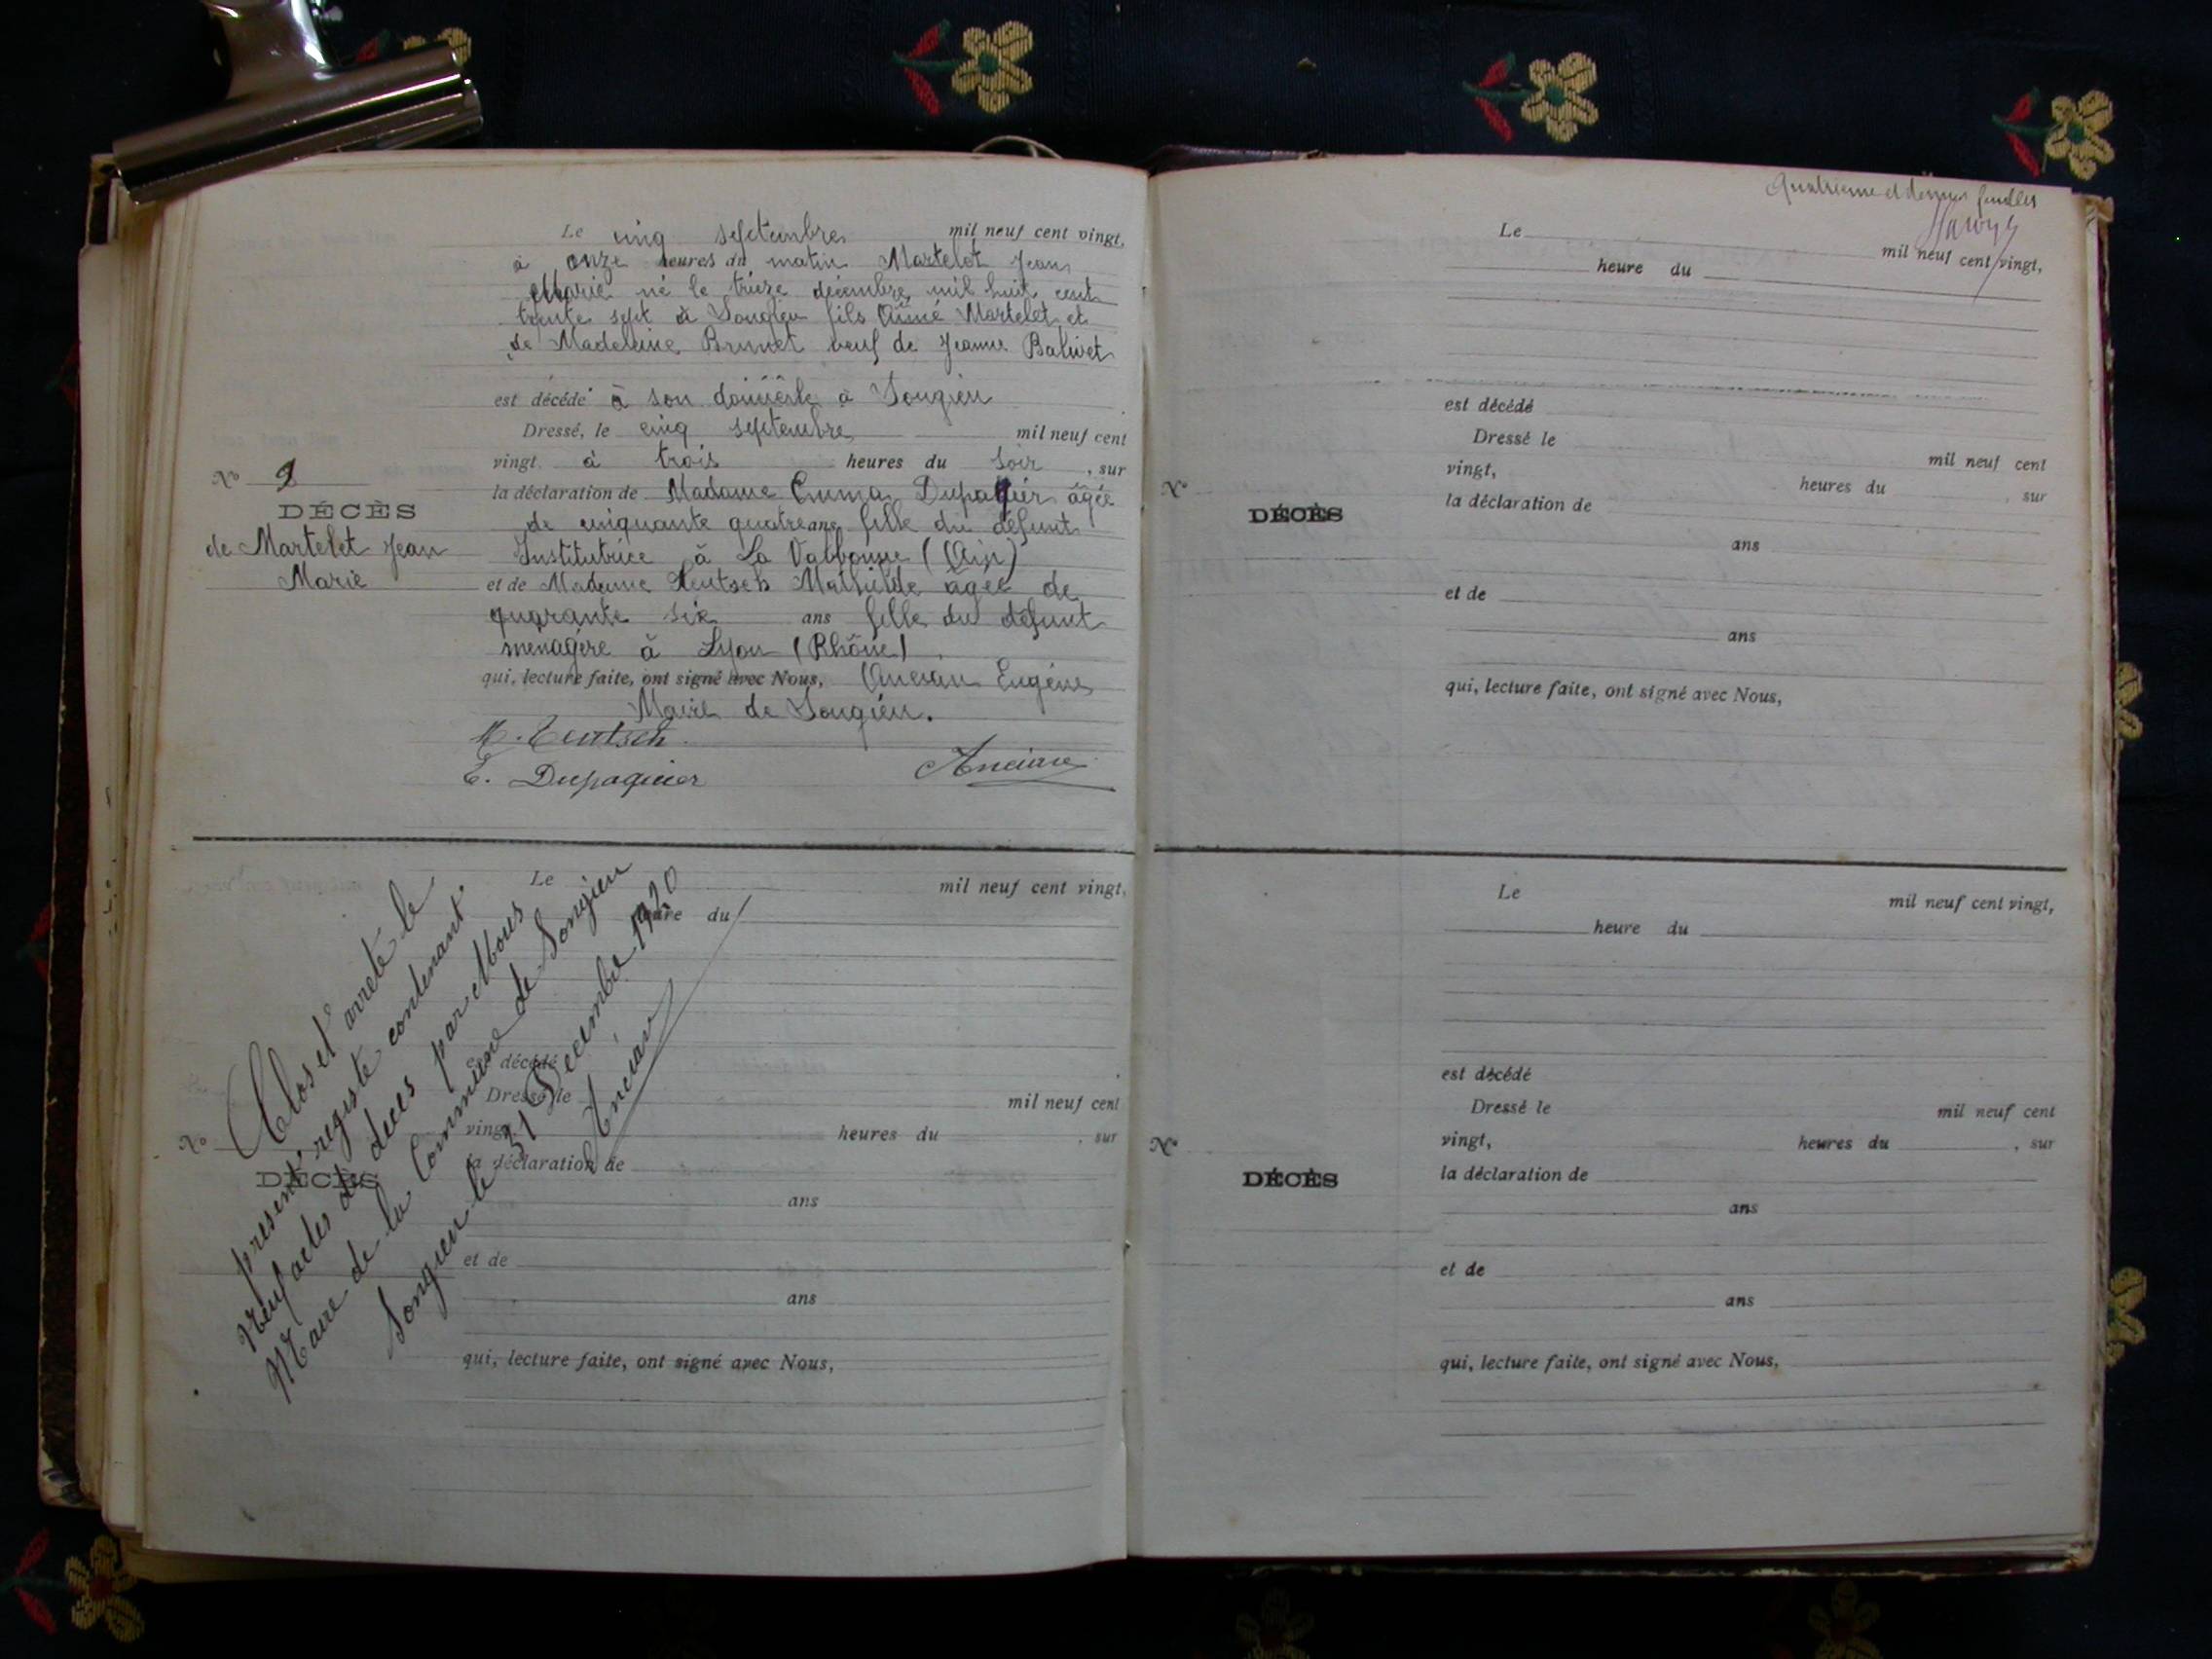 Le cinq septembre mil neuf cent vingt,
à onze heures du matin Martelet Jean
Marie né le trieze décembre mil huit cent
trente sept à Songieu fils Aimé Martelet et
de Madeleine Brunet veuf de Jeanne Balivet
est décédé à son domicile à Songieu
Dressé, le cinq septembre mil neuf cent
vingt à trois heures du soir , sur
la déclaration de Madame Emma Dupaquier âgée
de cinquante quatre ans fille du défunt
Institutrice à La Valbonne (Ain)
et de Madame Teutsch Mathilde âgée de
quarante six ans fille du défunt
menagère à Lyon (Rhône)
qui, lecture faite, ont signé avec Nous, Ancian Eugène
Maire de Songieu.
M. Teutsch
E. Dupaquier
Ancian
No 9
DÉCÈS
de Martelet Jean
Marie
Le mil neuf cent vingt,
heure du
est décédé
Dressé le mil neuf cent
vingt, heures du , sur
la déclaration de
ans
No
DÉCÈS
et de
ans
qui, lecture faite, ont signé avec Nous,
Clos et arreté le
présent registe contenant
Neuf actes de deces par Nous
Maire de la Commune de Songieu
Songieu le 31 Decembre 1920
Ancian
Quatrieme et dernier feuillet
Le mil neuf cent vingt,
heure du
est décédé
Dressé le mil neuf cent
vingt, heures du , sur
la déclaration de
No
DÉCÈS
ans
et de
ans
qui, lecture faite, ont signé avec Nous,
Le mil neuf cent vingt,
heure du
est décédé
Dressé le mil neuf cent
vingt, heures du , sur
No
DÉCÈS
la déclaration de
ans
et de
ans
qui, lecture faite, ont signé avec Nous,